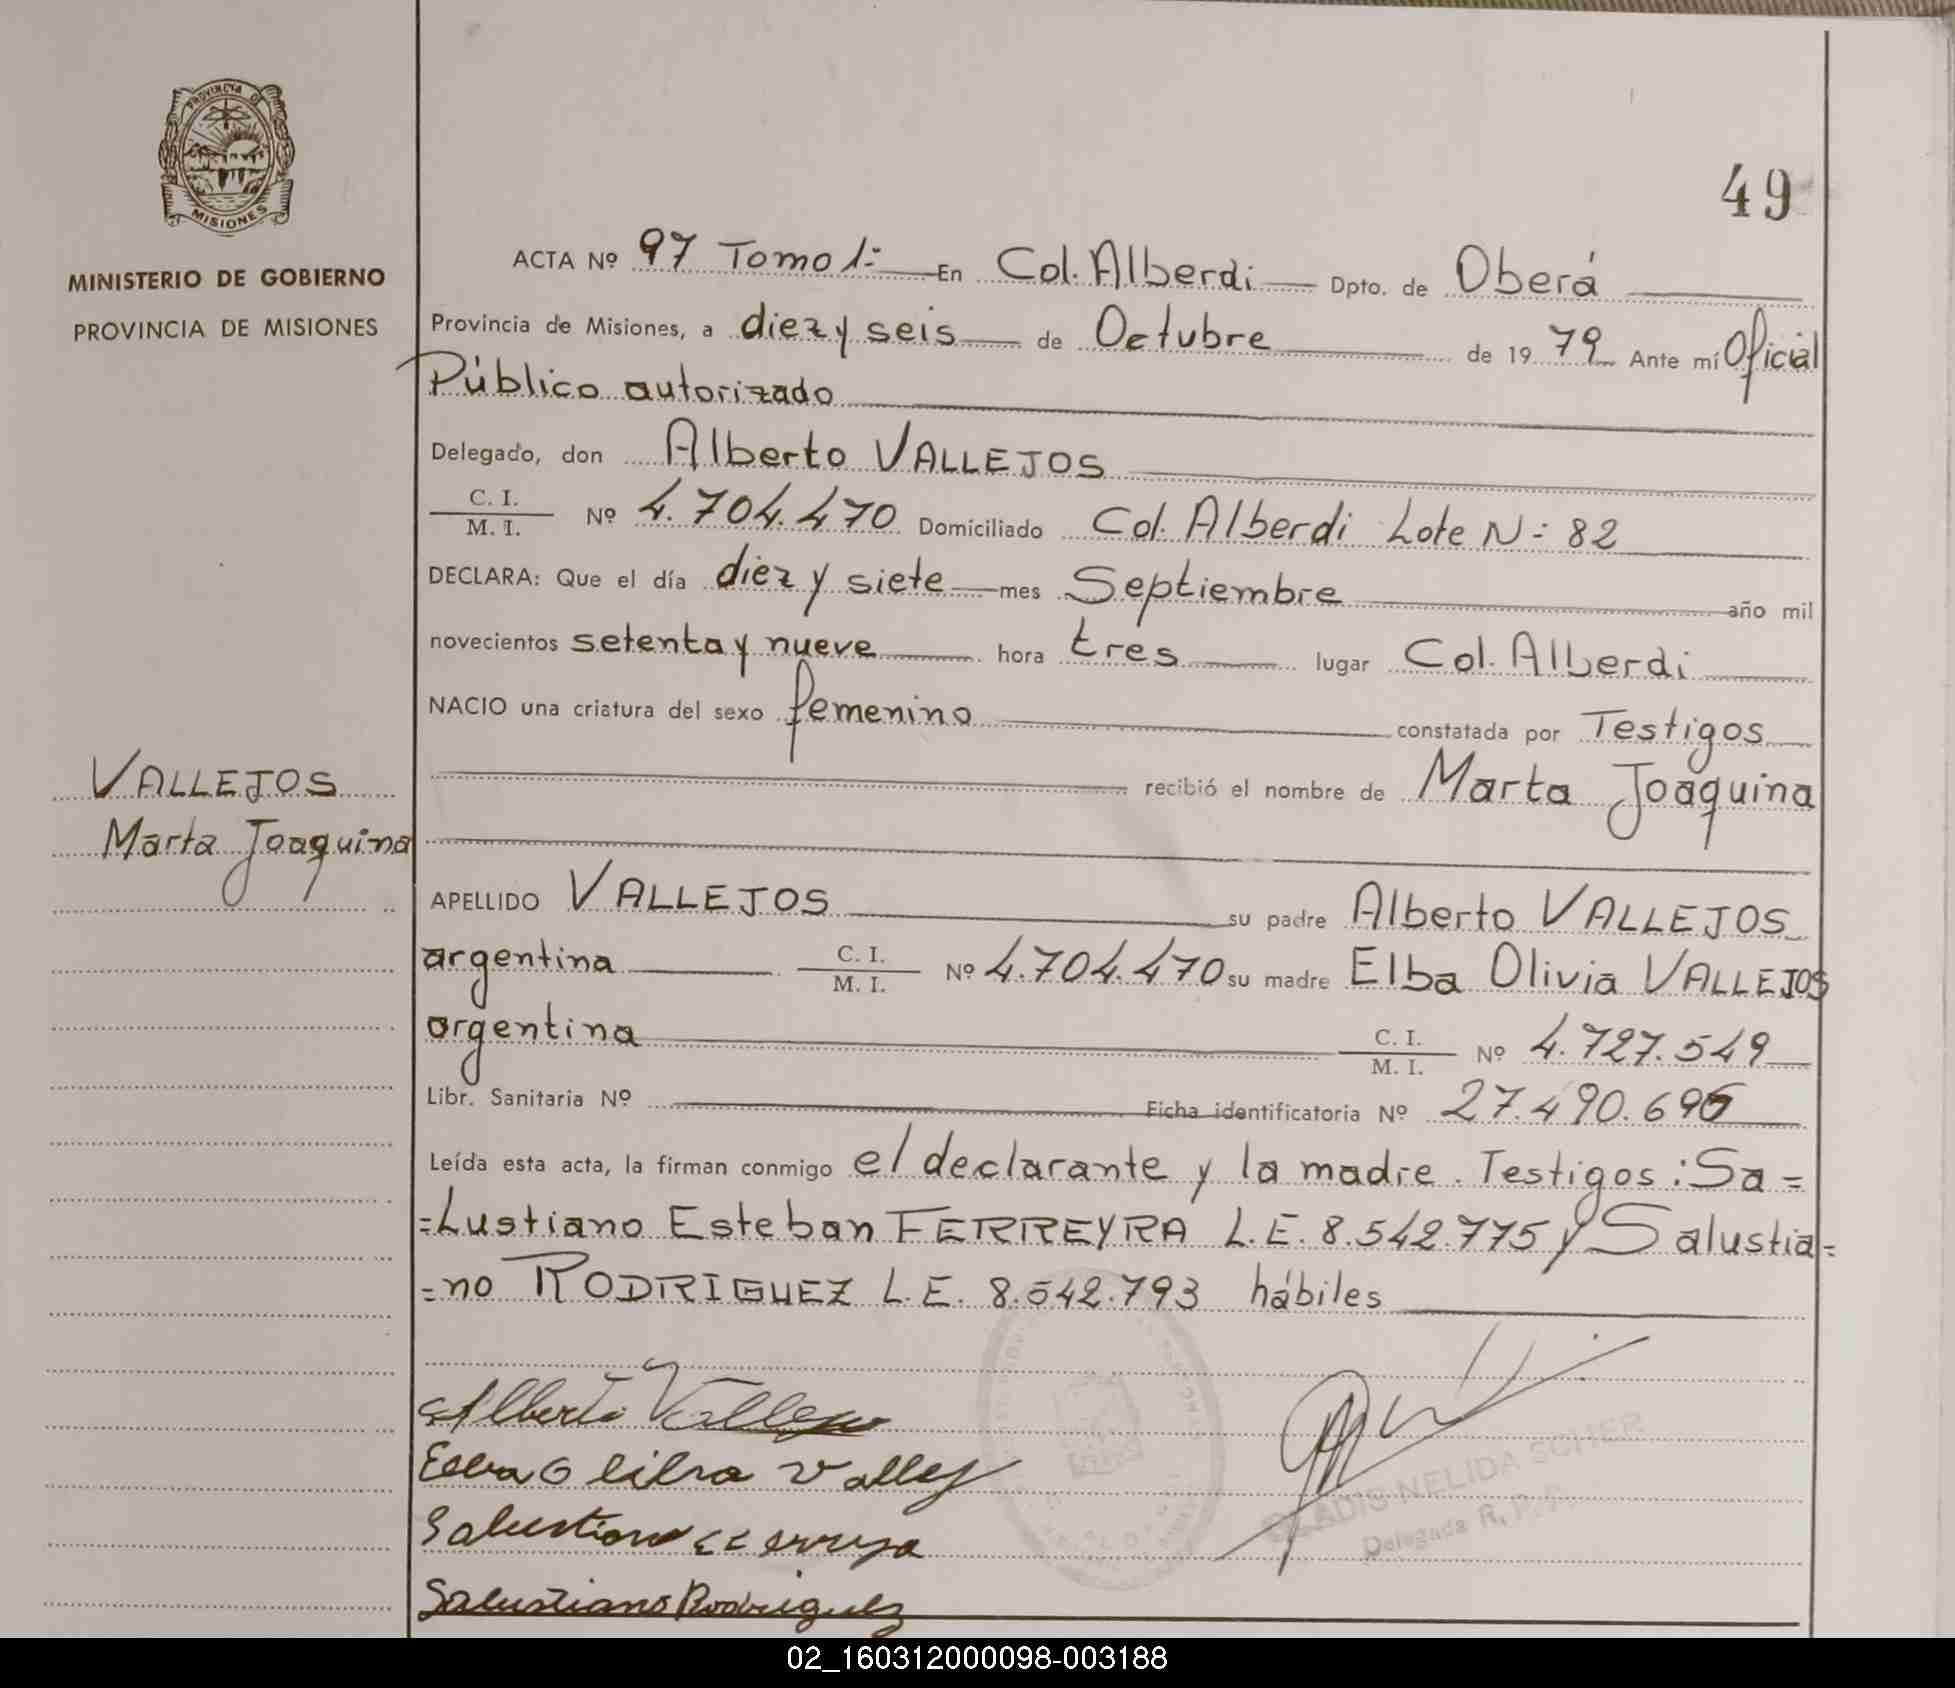 PROVINCIA DE
MISIONES
MINISTERIO DE GOBIERNO
PROVINCIA DE MISIONES
49
ACTA Nº 97 Tomo 1:- En Col. Alberdi Dpto. de Oberá
Provincia de Misiones, a diez y seis de Octubre de 19 79 Ante mí Oficial
Público autorizado
Delegado, don Alberto VALLEJOS
C. I.
M. I. Nº 4.704.470 Domiciliado Col. Alberdi Lote N:- 82
DECLARA: Que el día diez y siete mes Septiembre año mil
novecientos setenta y nueve hora tres lugar Col. Alberdi
NACIO una criatura del sexo femenino constatada por Testigos
recibió el nombre de Marta Joaquina
VALLEJOS
Marta Joaquina
APELLIDO VALLEJOS su padre Alberto VALLEJOS
argentina C. I. M. I. Nº 4.704.470 su madre Elba Olivia VALLEJOS
argentina C. I. M. I. Nº 4.727.549
Libr. Sanitaria Nº Ficha identificatoria Nº 27.490.696
Leída esta acta, la firman conmigo el declarante y la madre. Testigos: Sa=
=Lustiano Esteban FERREYRA L.E. 8.542.775 y Salustia=
=no RODRIGUEZ L.E. 8.542.793 hábiles
Alberto Vallejo
Salustiano Rodriguez
NELIDA SCHER
Delegada R. P. P.
02_160312000098-003188